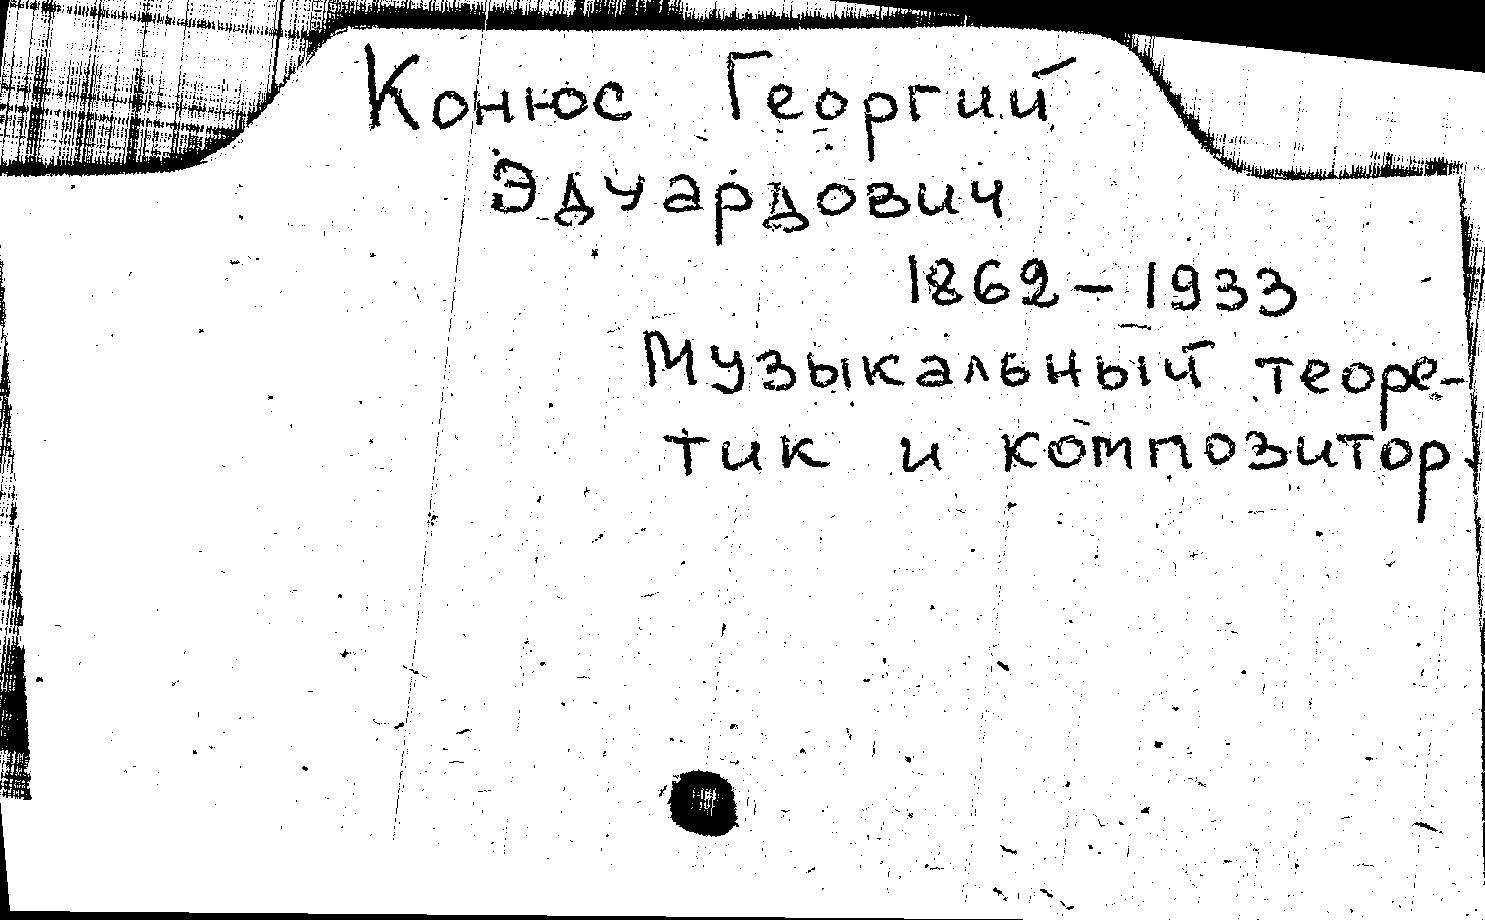 Конюс Георгий
Эдуардович
1862 – 1933
Музыкальный теоре-
тик и композитор.